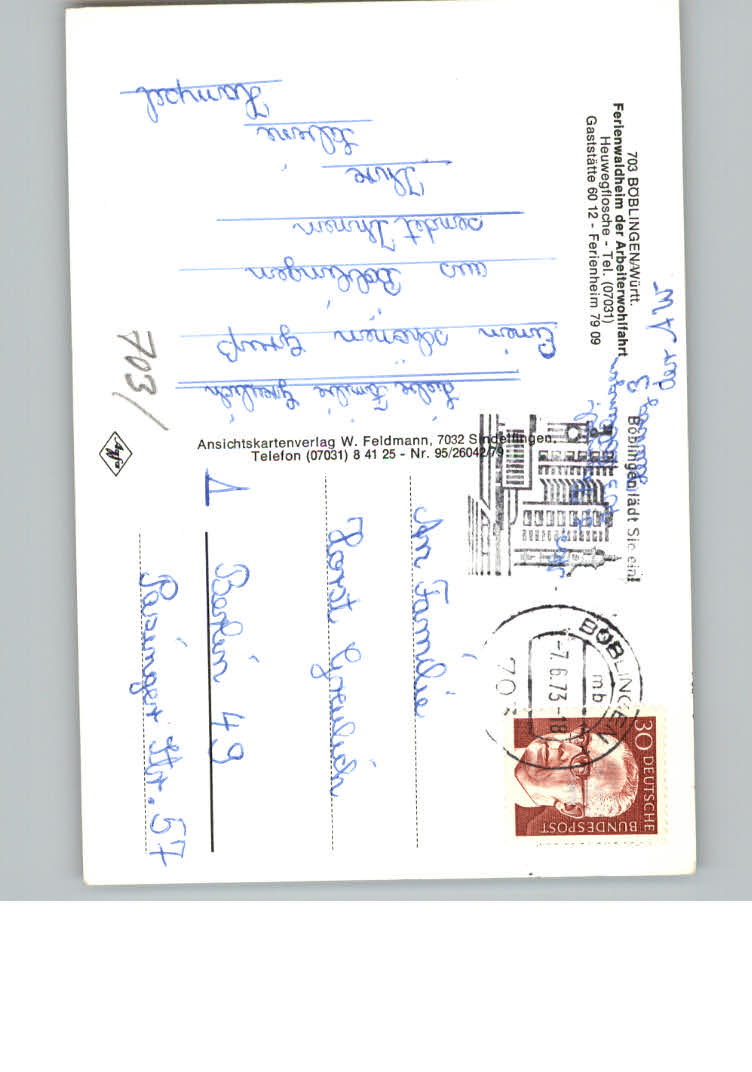 703 BÖBLINGEN/Württ.
Ferienwaldheim der Arbeiterwohlfahrt
Heuwegflosche - Tel. (07031)
Gaststätte 60 12 - Ferienheim 79 09
Liebe Familie Greulich
Einen schönen Gruß
aus Böblingen
sendet Ihnen
Ihre
Sabine
Hampel
703/
Ansichtskartenverlag W. Feldmann, 7032 Sindelfingen,
Telefon (07031) 8 41 25 - Nr. 95/26042/79
Agfa
Böblingen lädt Sie ein!
BÖBLINGEN
mb
-7.6.73-18
703
30 DEUTSCHE
BUNDESPOST
An Familie
Horst Greulich
1 Berlin 49
Pasinger Str. 57